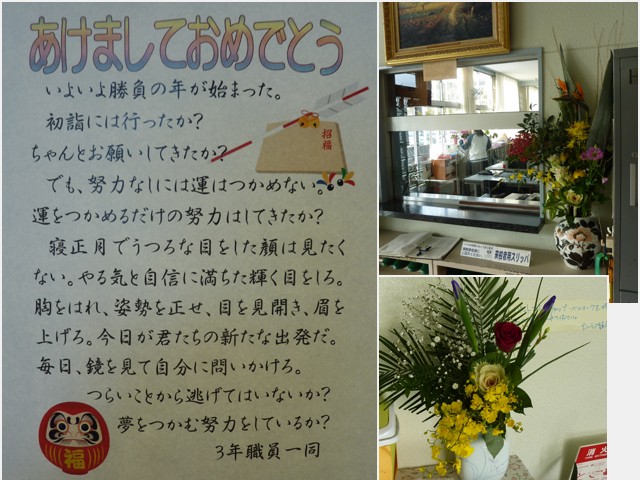 あけましておめでとう
いよいよ勝負の年が始まった。
初詣には行ったか？
ちゃんとお願いしてきたか？
でも、努力なしには運はつかめない。
運をつかめるだけの努力はしてきたか？
寝正月でうつろな目をした顔は見たく
ない。やる気と自信に満ちた輝く目をしろ。
胸をはれ、姿勢を正せ、目を見開き、眉を
上げろ。今日が君たちの新たな出発だ。
毎日、鏡を見て自分に問いかけろ。
つらいことから逃げてはいないか？
夢をつかむ努力をしているか？
3年職員一同
招福
福
来校者用スリッパ
消火